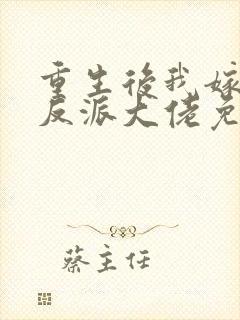 重生後我嫁
反派大佬免
蔡主任